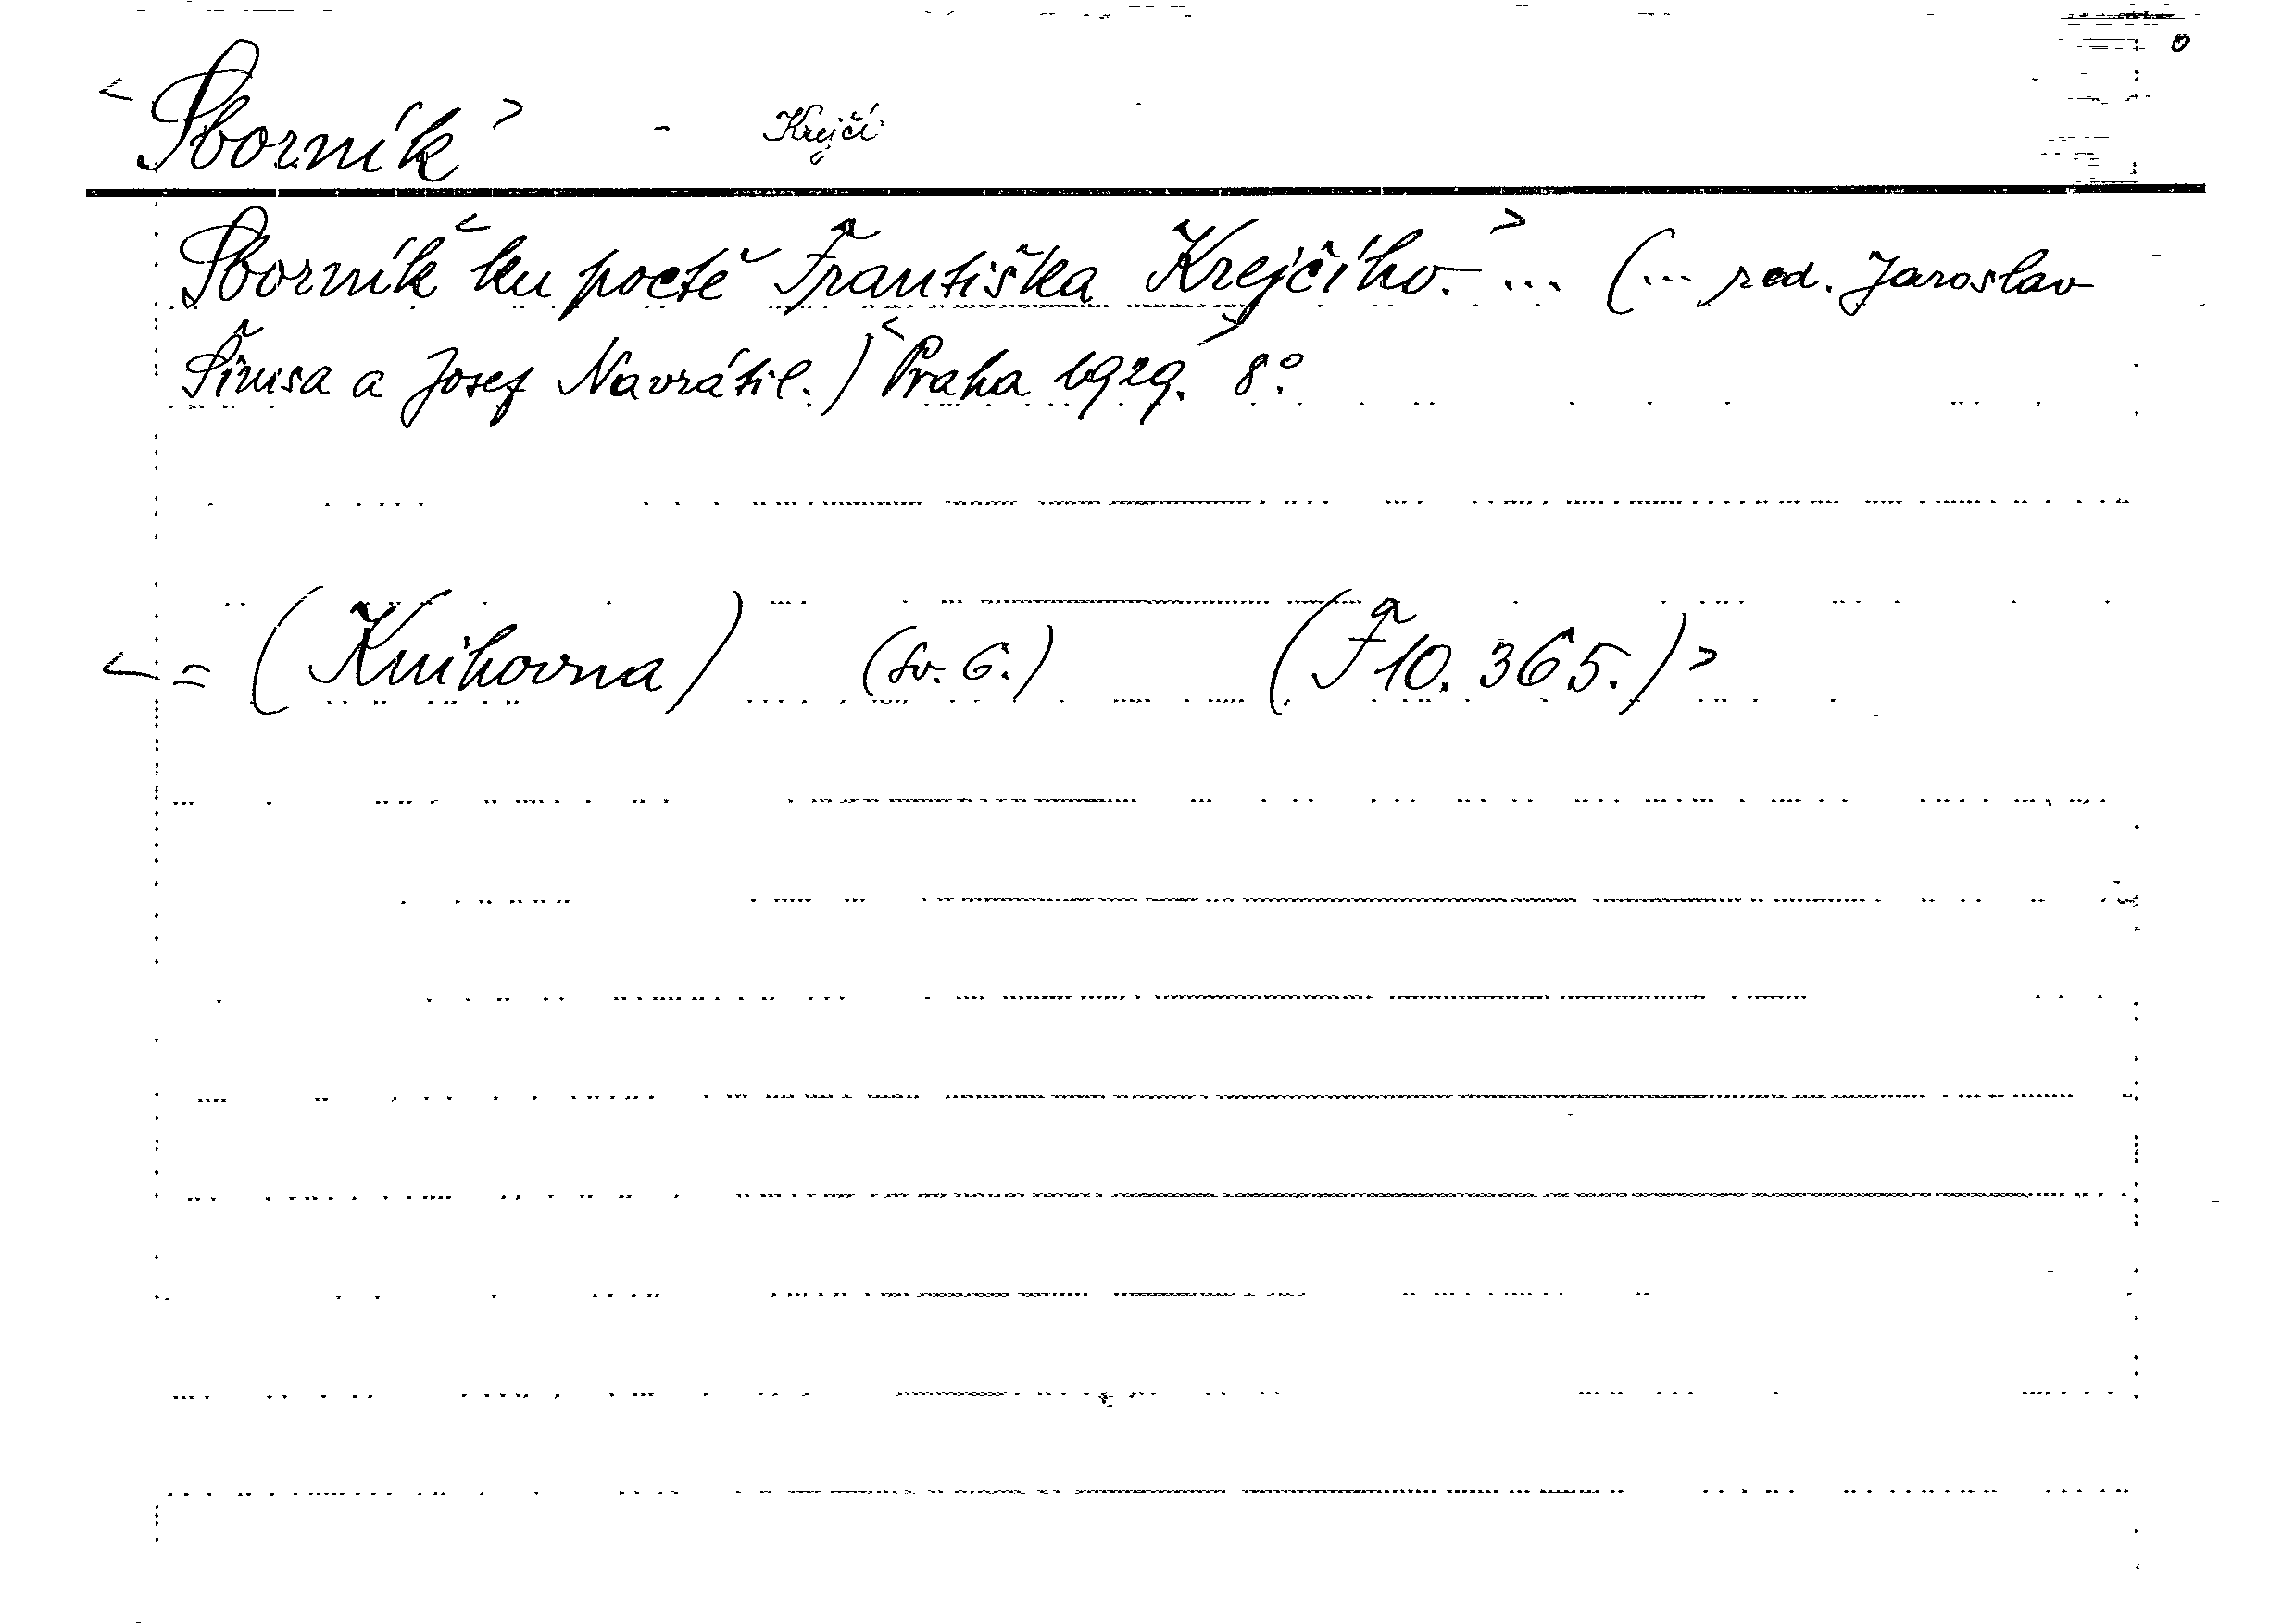 <Sborník> - Krejčí
Sborník <ku poctě Františka Krejčího.> ... (... red. Jaroslav
Šimsa a Josef Navrátil.) <Praha 1929.> 8°.
<= (Knihovna) (sv. 6.) (F 10.365.)>